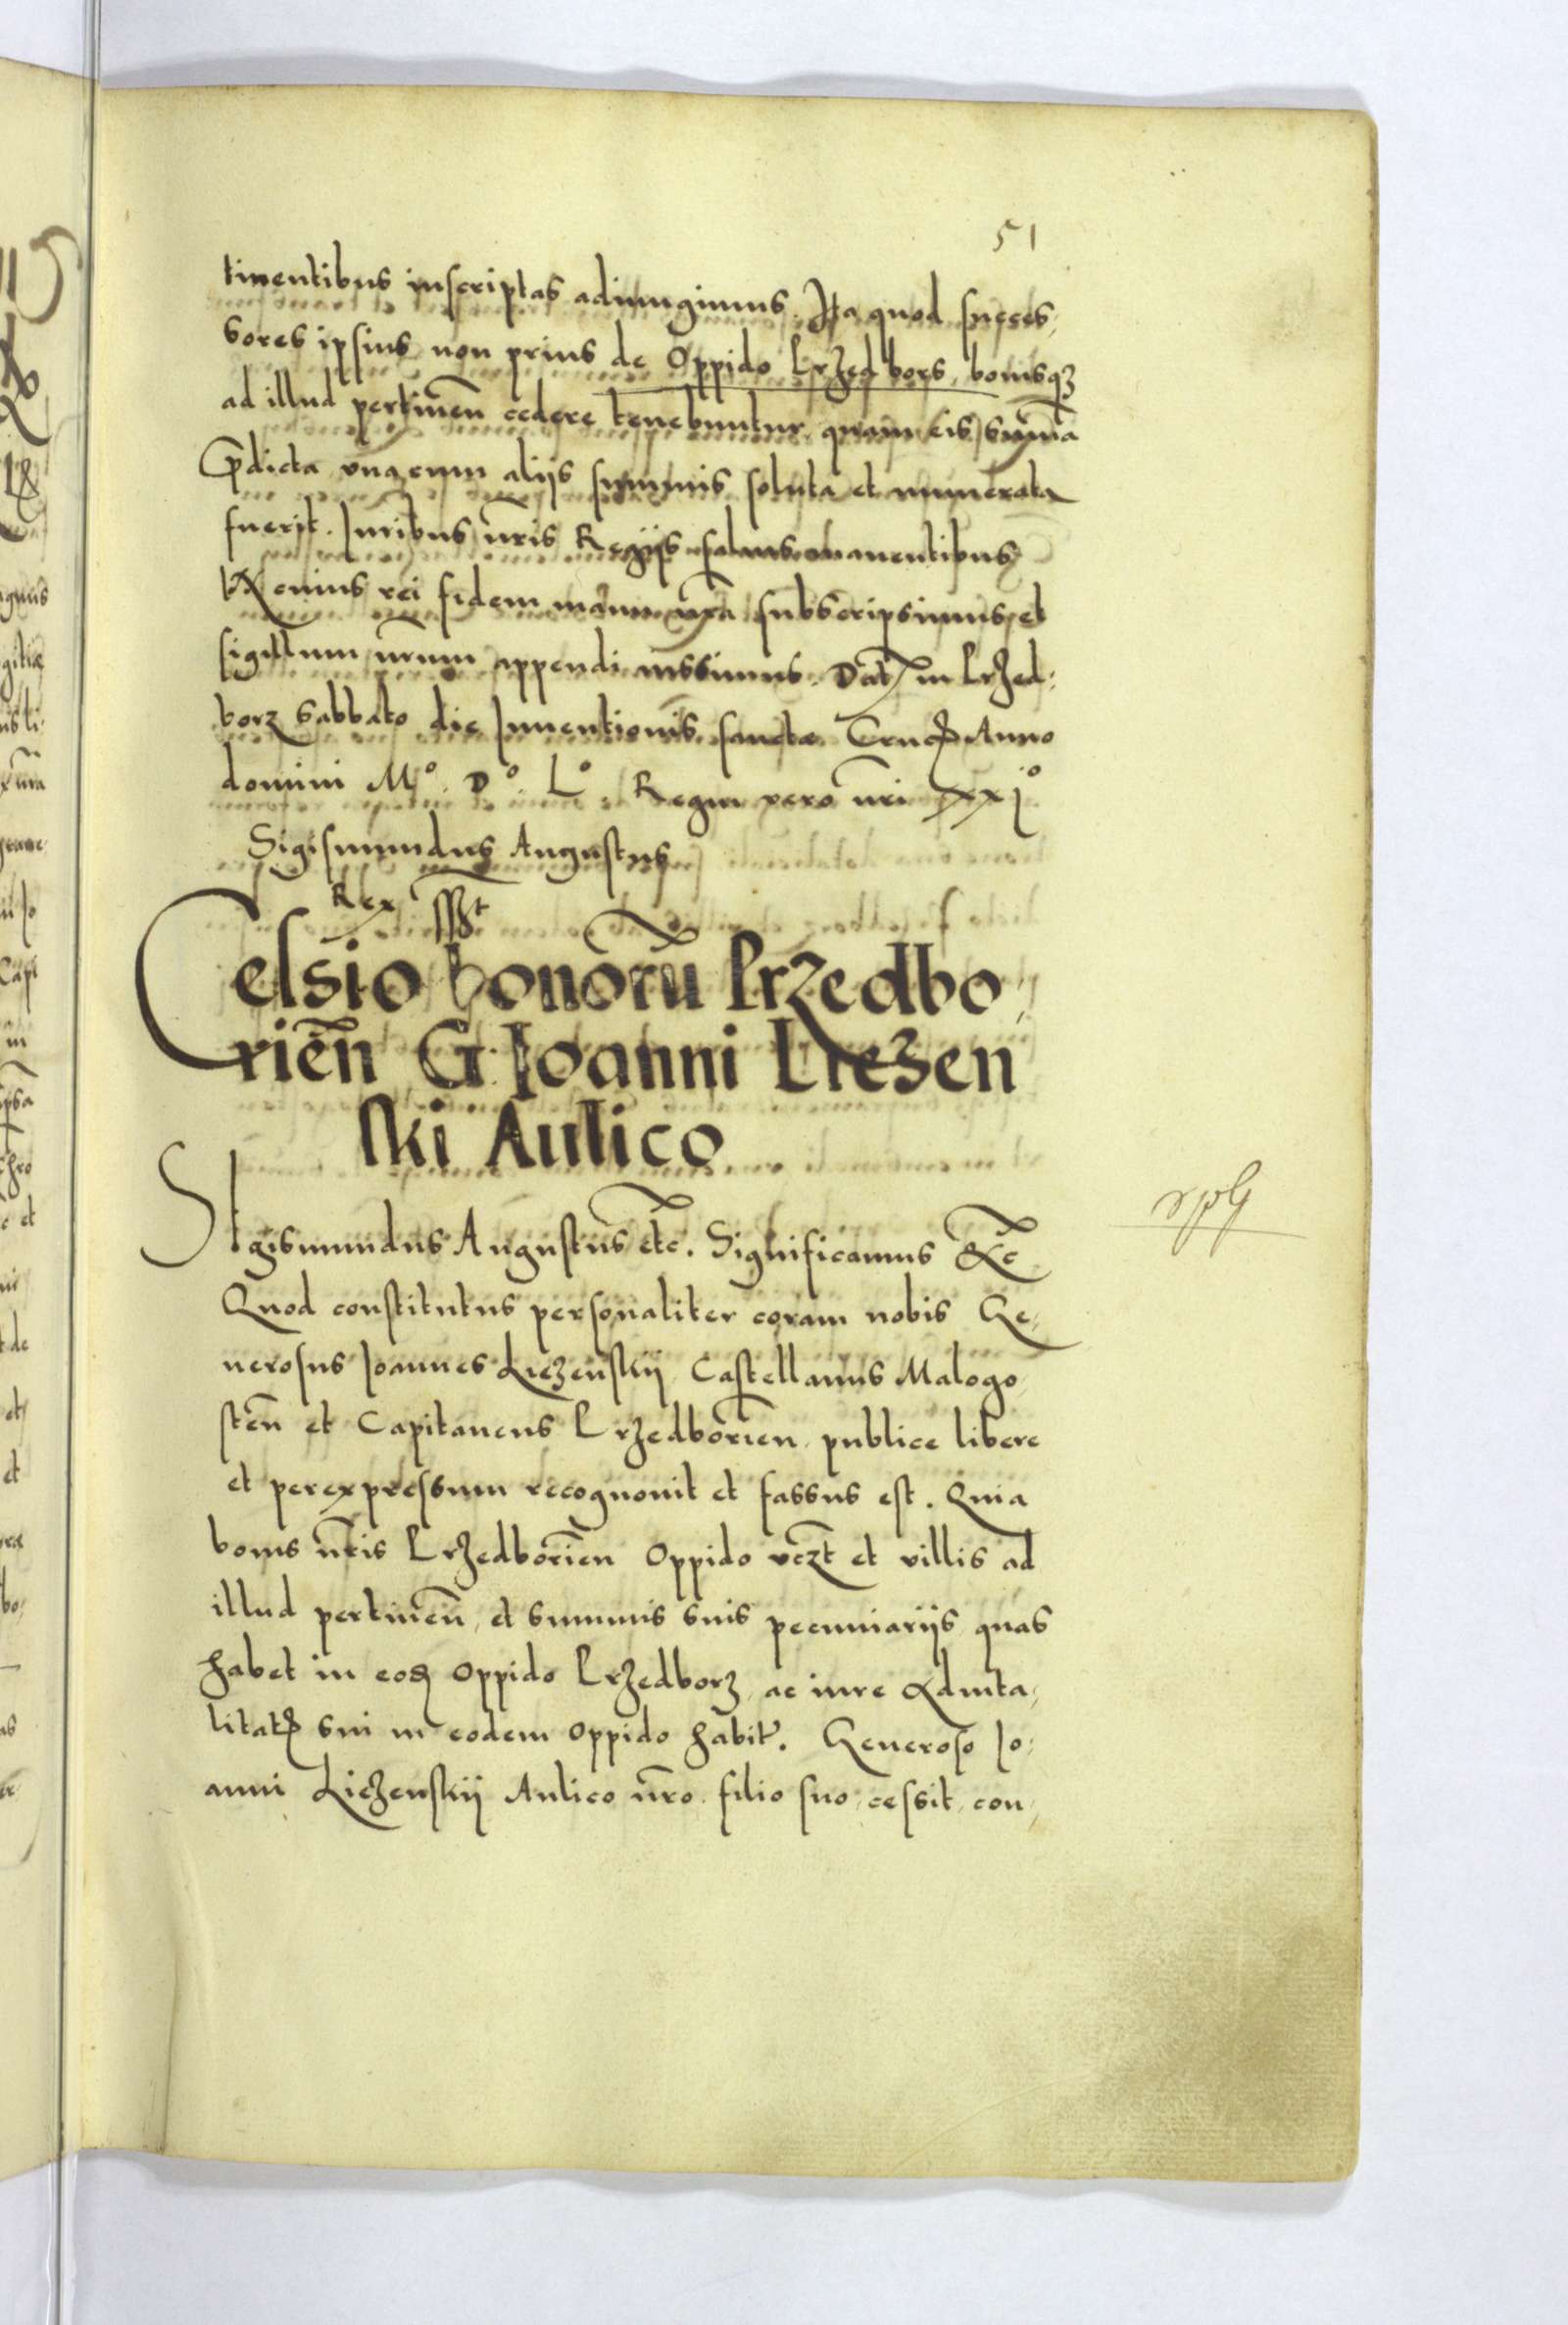 51
tinentibus inscriptas adiungimus. Ita quod succes,
sores ipsius non prius de Oppido Przedbors, bonisqȝ
ad illud pertineñ cedere tenebuntur, quam eis summa
p̄dicta una cum aliis summis soluta et numerata
fuerit. Iuribus nr̄is Regijs salvis manentibus
In cuius rei fidem manu nr̄a subscripsimus et
sigillum nr̄um appendi iussimus. Dat in Przed:
borz Sabbato die Inventionis sanctae Crucis Anno
domini Mº. Dº. Lº. Regni vero nr̄i xxjº
Sigismundus Augustus
Rex sst
Cessio bonorū Przedbo,
rieñ G. Ioanni Liczen
ski Aulico
Sigismundus Augustus etc. Significamus &c̄
Quod constitutus personaliter coram nobis Ge,
nerosus Ioannes Liczenskij Castellanus Malogo,
steñ et Capitaneus Przedborieñ publice libere
et per expressum recognovit et fassus est. Quia
bonis nr̄is Przedborieñ Oppido vczt et villis ad
illud pertineñ, et summis suis pecuniarijs quas
habet in eod Oppido Przedborz, ac iure Advita,
litatis sui in eodem Oppido habit. Generoso Io:
anni Liczenskij Aulico nr̄o filio suo cessit, con,